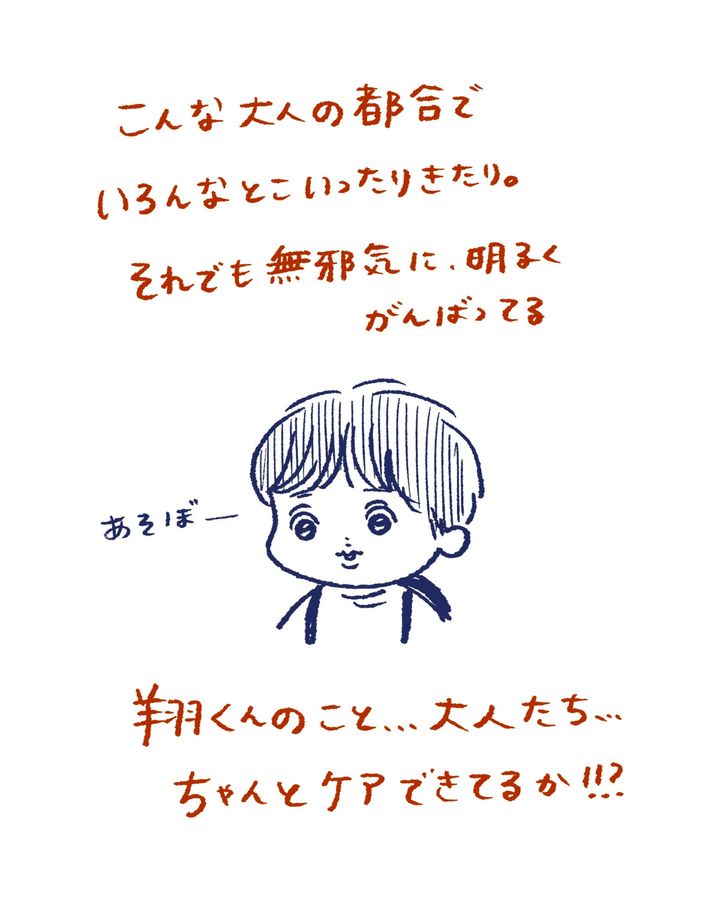 こんな大人の都合で
いろんなとこいったりきたり。
それでも無邪気に、明るく
がんばってる
あそぼー
翔くんのこと…大人たち…
ちゃんとケアできてるか!!?